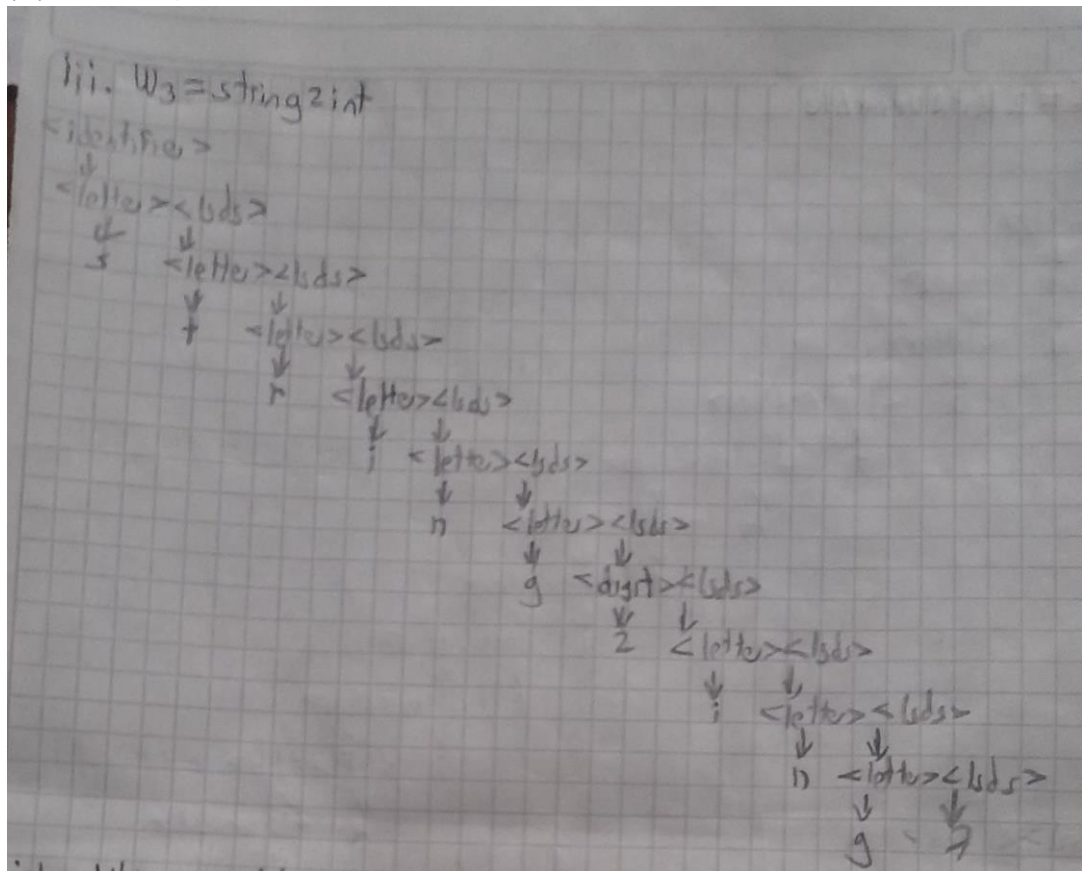 iii. W3 = string2int
<identifier>
↓
<letter><lsds>
↓ ↓
s <letter><lsds>
↓ ↓
t <letter><lsds>
↓ ↓
r <letter><lsds>
↓ ↓
i <letter><lsds>
↓ ↓
n <letter><lsds>
↓ ↓
g <digit><lsds>
↓ ↓
2 <letter><lsds>
↓ ↓
i <letter><lsds>
↓ ↓
n <letter><lsds>
↓ ↓
g